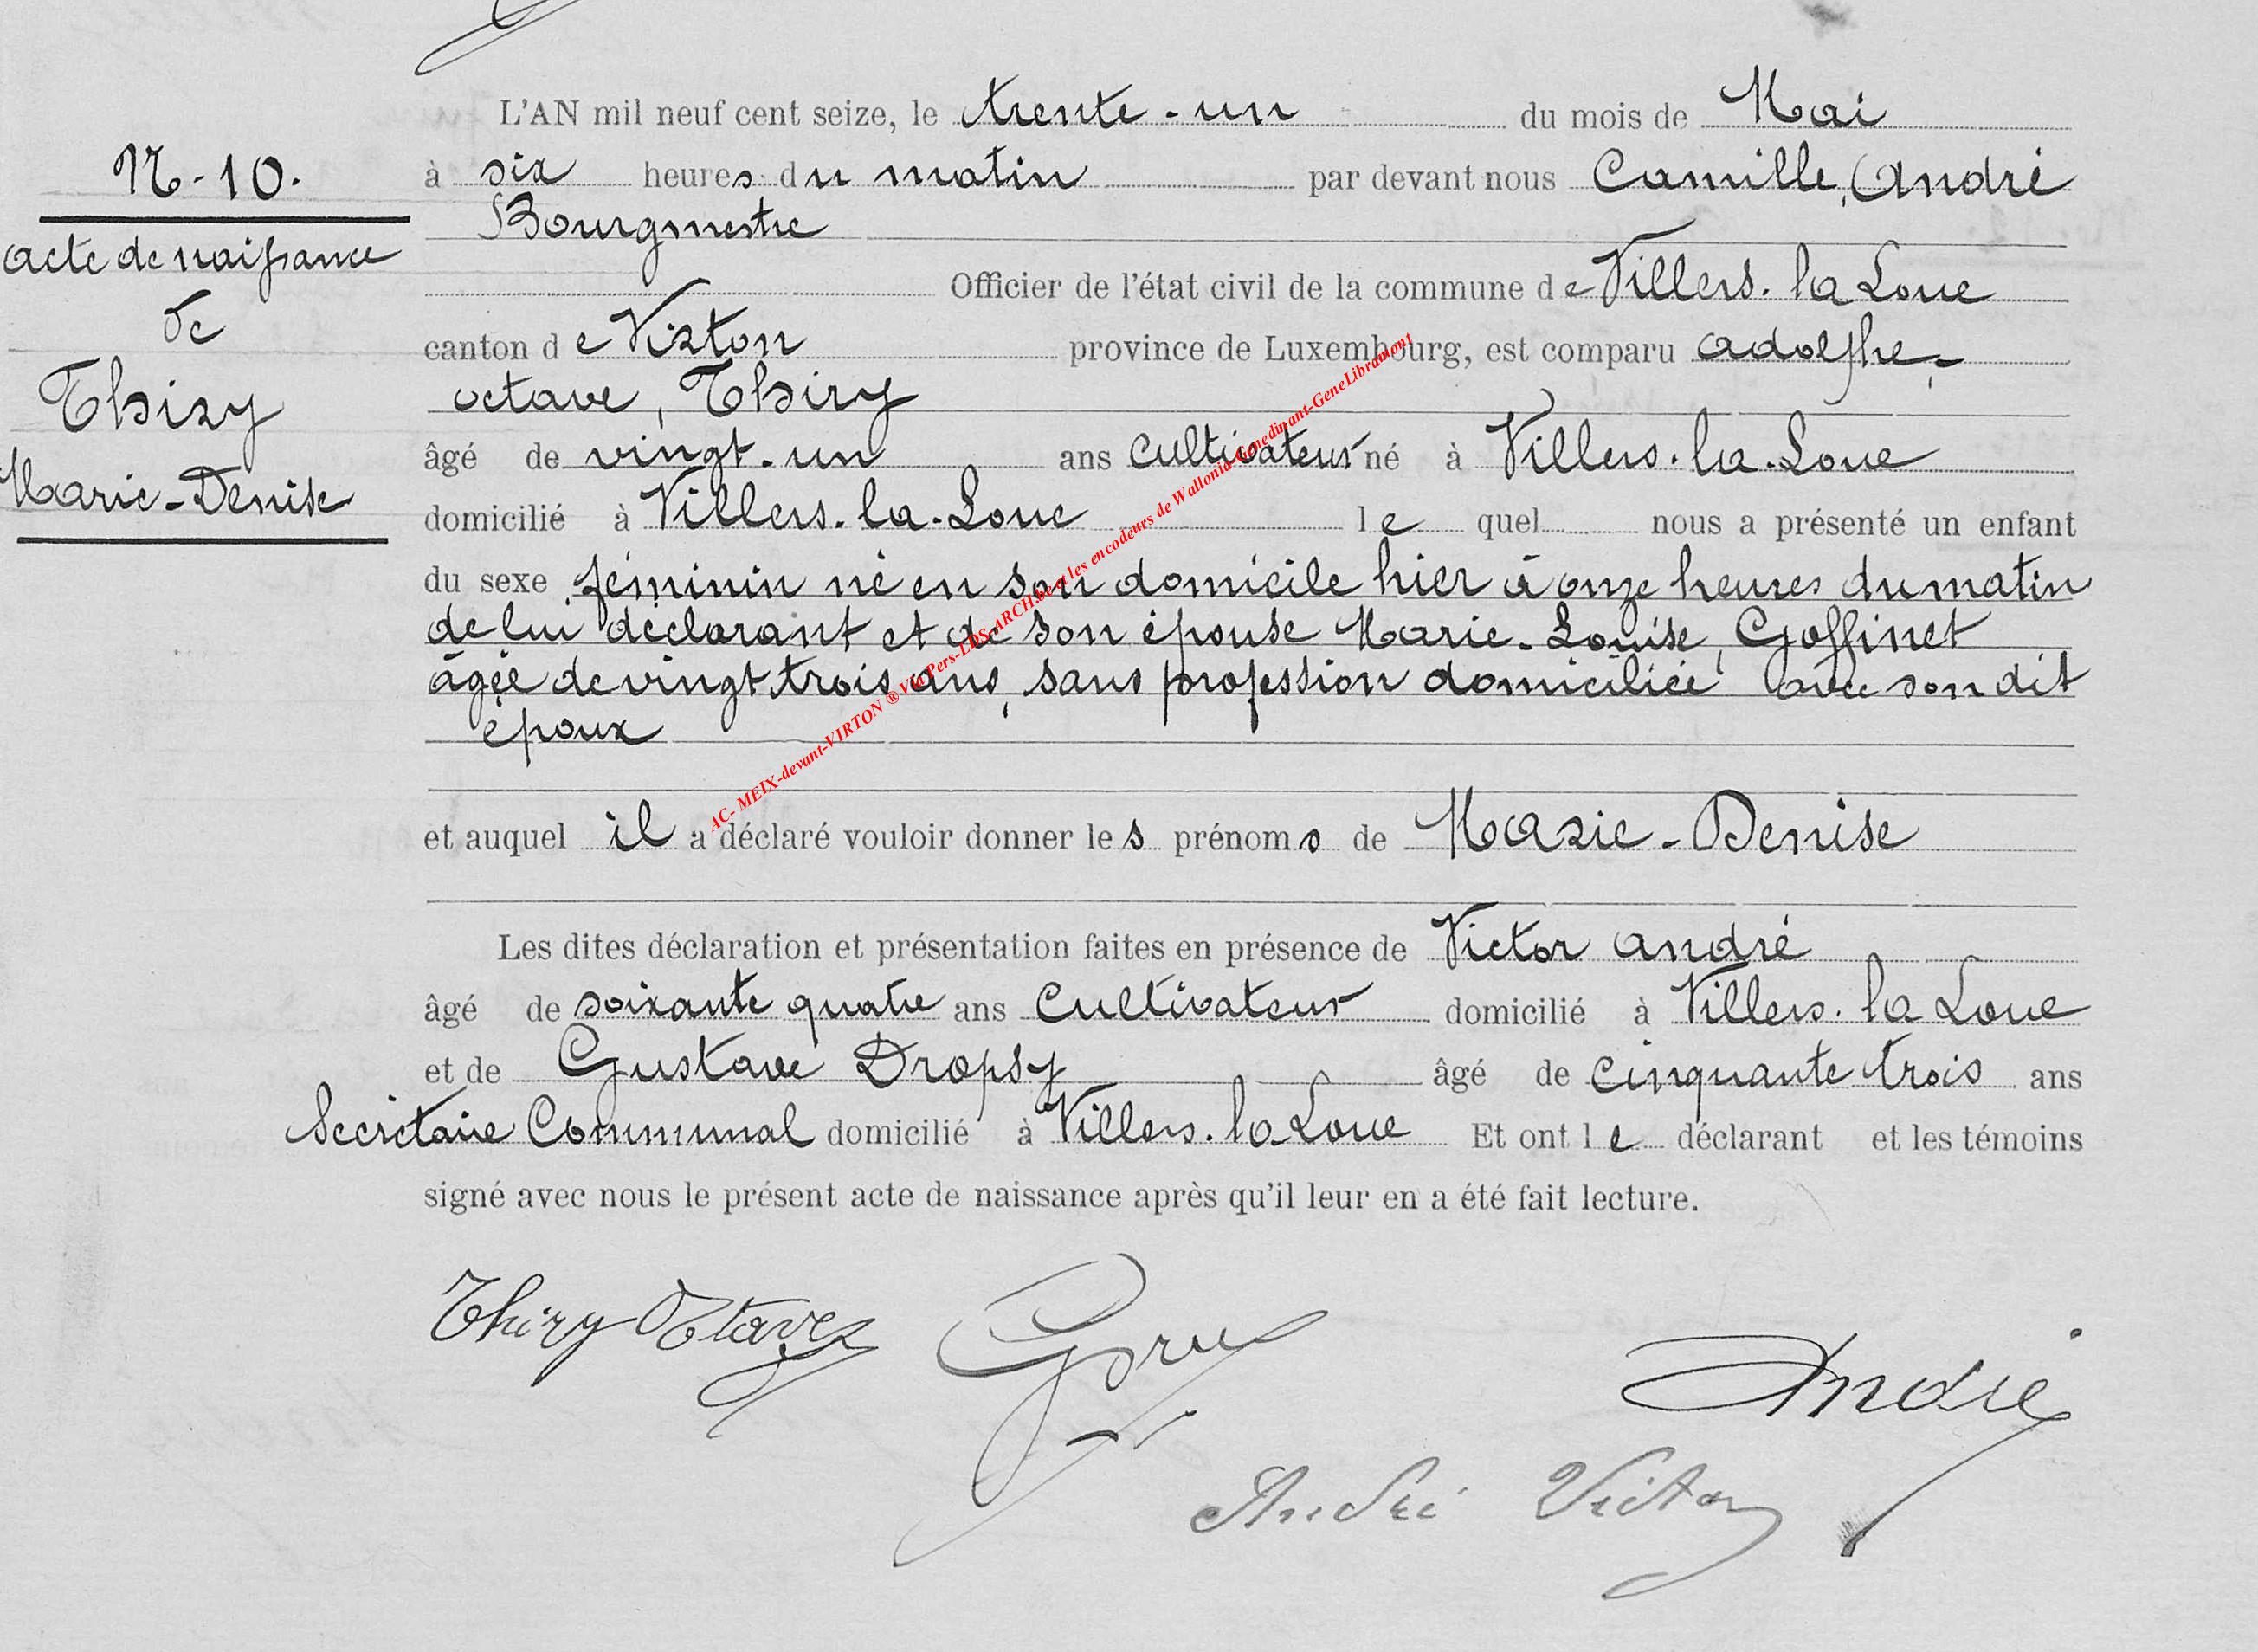 N-10.
acte de naissance
de
Thiry
Marie-Denise
L'AN mil neuf cent seize, le trente-un du mois de Mai
à six heures du matin par devant nous Camille, André
Bourgmestre
Officier de l'état civil de la commune de Villers-la Loue
canton de Virton province de Luxembourg, est comparu adolphe-
octave, Thiry
âgé de vingt-un ans cultivateur né à Villers-la-Loue
domicilié à Villers-la-Loue le quel nous a présenté un enfant
du sexe féminin né en son domicile hier à onze heures du matin
de lui déclarant et de son épouse Marie-Louise, Goffinet
âgée de vingt trois ans, sans profession domiciliée avec son dit
époux
et auquel il a déclaré vouloir donner les prénoms de Marie-Denise
Les dites déclaration et présentation faites en présence de Victor andré
âgé de soixante quatre ans Cultivateur domicilié à Villers-la Loue
et de Gustave Dropsy âgé de cinquante trois ans
Secrétaire Communal domicilié à Villers-la-Loue Et ont le déclarant et les témoins
signé avec nous le présent acte de naissance après qu'il leur en a été fait lecture.
Thiry Octave
André
André Victor
AC- MEIX-devant-VIRTON ® Via les encodeurs de Wallonia-Gedinnant-GeneLibramont